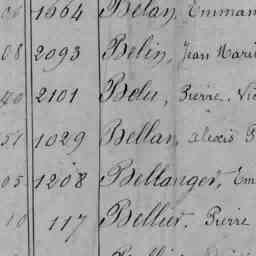 06 1664 Belan, Emman
08 2093 Belin, Jean Mari
40 2101 Belu, Pierre, Vic
51 1029 Bellan, alexis P
05 1208 Bellanger, Em
10 117 Bellier, Pierre